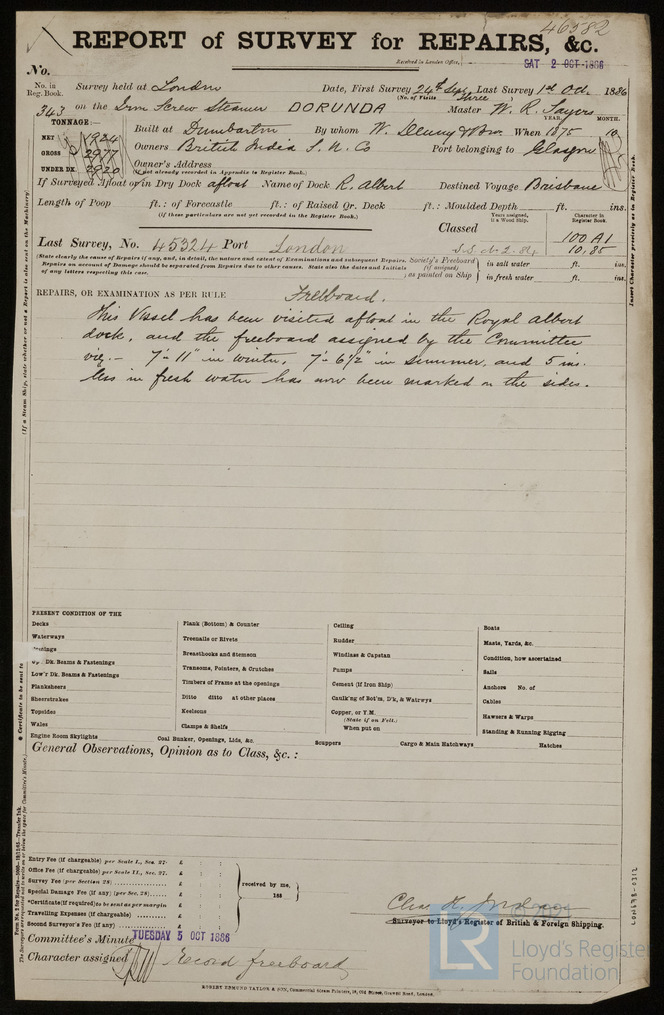 46582
REPORT of SURVEY for REPAIRS, &c.
Received in London Office,
SAT 2 OCT 1886
No.
No. in Reg. Book. Survey held at London Date, First Survey 24th Sep. Last Survey 1st Oct. 1886
(No. of Visits Three)
343 on the Iron Screw Steamer DORUNDA Master W. R. Sayers
TONNAGE:—
YEAR. MONTH.
NET 1924 Built at Dumbarton By whom W. Denny & Bros. When 1875 10
GROSS 2977 Owners British India S. N. Co Port belonging to Glasgow
UNDER DK. 2920 Owner's Address
(If not already recorded in Appendix to Register Book.)
If Surveyed Afloat or in Dry Dock afloat Name of Dock R. Albert Destined Voyage Brisbane
Length of Poop ft.: of Forecastle ft.: of Raised Qr. Deck ft.: Moulded Depth ft. ins.
(If these particulars are not yet recorded in the Register Book.)
Years assigned, if a Wood Ship.
Character in Register Book.
Classed
100 A1
Last Survey, No. 45324 Port London
10,85
(State clearly the cause of Repairs if any, and, in detail, the nature and extent of Examinations and subsequent Repairs.
Repairs on account of Damage should be separated from Repairs due to other causes. State also the dates and Initials
of any letters respecting this case.
Society's Freeboard (if assigned), as painted on Ship
in salt water ft. ins.
in fresh water ft. ins.
REPAIRS, OR EXAMINATION AS PER RULE Freeboard.
This Vessel has been visited afloat in the Royal Albert
dock, and the freeboard assigned by the Committee
viz:— 7'-11" in winter, 7'-6½" in summer, and 5 ins.
less in fresh water has now been marked on the sides.
PRESENT CONDITION OF THE
Decks
Waterways
Up. Dk. Beams & Fastenings
Low'r Dk. Beams & Fastenings
Planksheers
Sheerstrakes
Topsides
Wales
Engine Room Skylights
Plank (Bottom) & Counter
Treenails or Rivets
Breasthooks and Stemson
Transoms, Pointers, & Crutches
Timbers of Frame at the openings
Ditto ditto at other places
Keelsons
Clamps & Shelfs
Coal Bunker, Openings, Lids, &c.
Ceiling
Rudder
Windlass & Capstan
Pumps
Cement (If Iron Ship)
Caulk'ng of Bot'm, D'k, & Watrwys
Copper, or Y.M.
(State if on Felt.)
When put on
Scuppers
Cargo & Main Hatchways
Boats
Masts, Yards, &c.
Condition, how ascertained
Sails
Anchors No. of
Cables
Hawsers & Warps
Standing & Running Rigging
Hatches
General Observations, Opinion as to Class, &c.:
Entry Fee (if chargeable) per Scale I., Sec. 27. £ : :
Office Fee (if chargeable) per Scale II., Sec. 27. £ : :
Survey Fee (per Section 28) £ : :
Special Damage Fee (if any) (per Sec. 28) £ : :
*Certificate (if required) to be sent as per margin £ : :
Travelling Expenses (if chargeable) £ : :
Second Surveyor's Fee (if any) £ : :
received by me,
188
Surveyor to Lloyd's Register of British & Foreign Shipping.
Committee's Minute TUESDAY 5 OCT 1886
Character assigned Record freeboard
ROBERT EDMUND TAYLOR & SON, Commercial Steam Printers, 19, Old Street, Goswell Road, London.
Insert Character precisely as in Register Book.
* Certificate to be sent to
LON698-0312
© 2021
LR
Lloyd's Register
Foundation